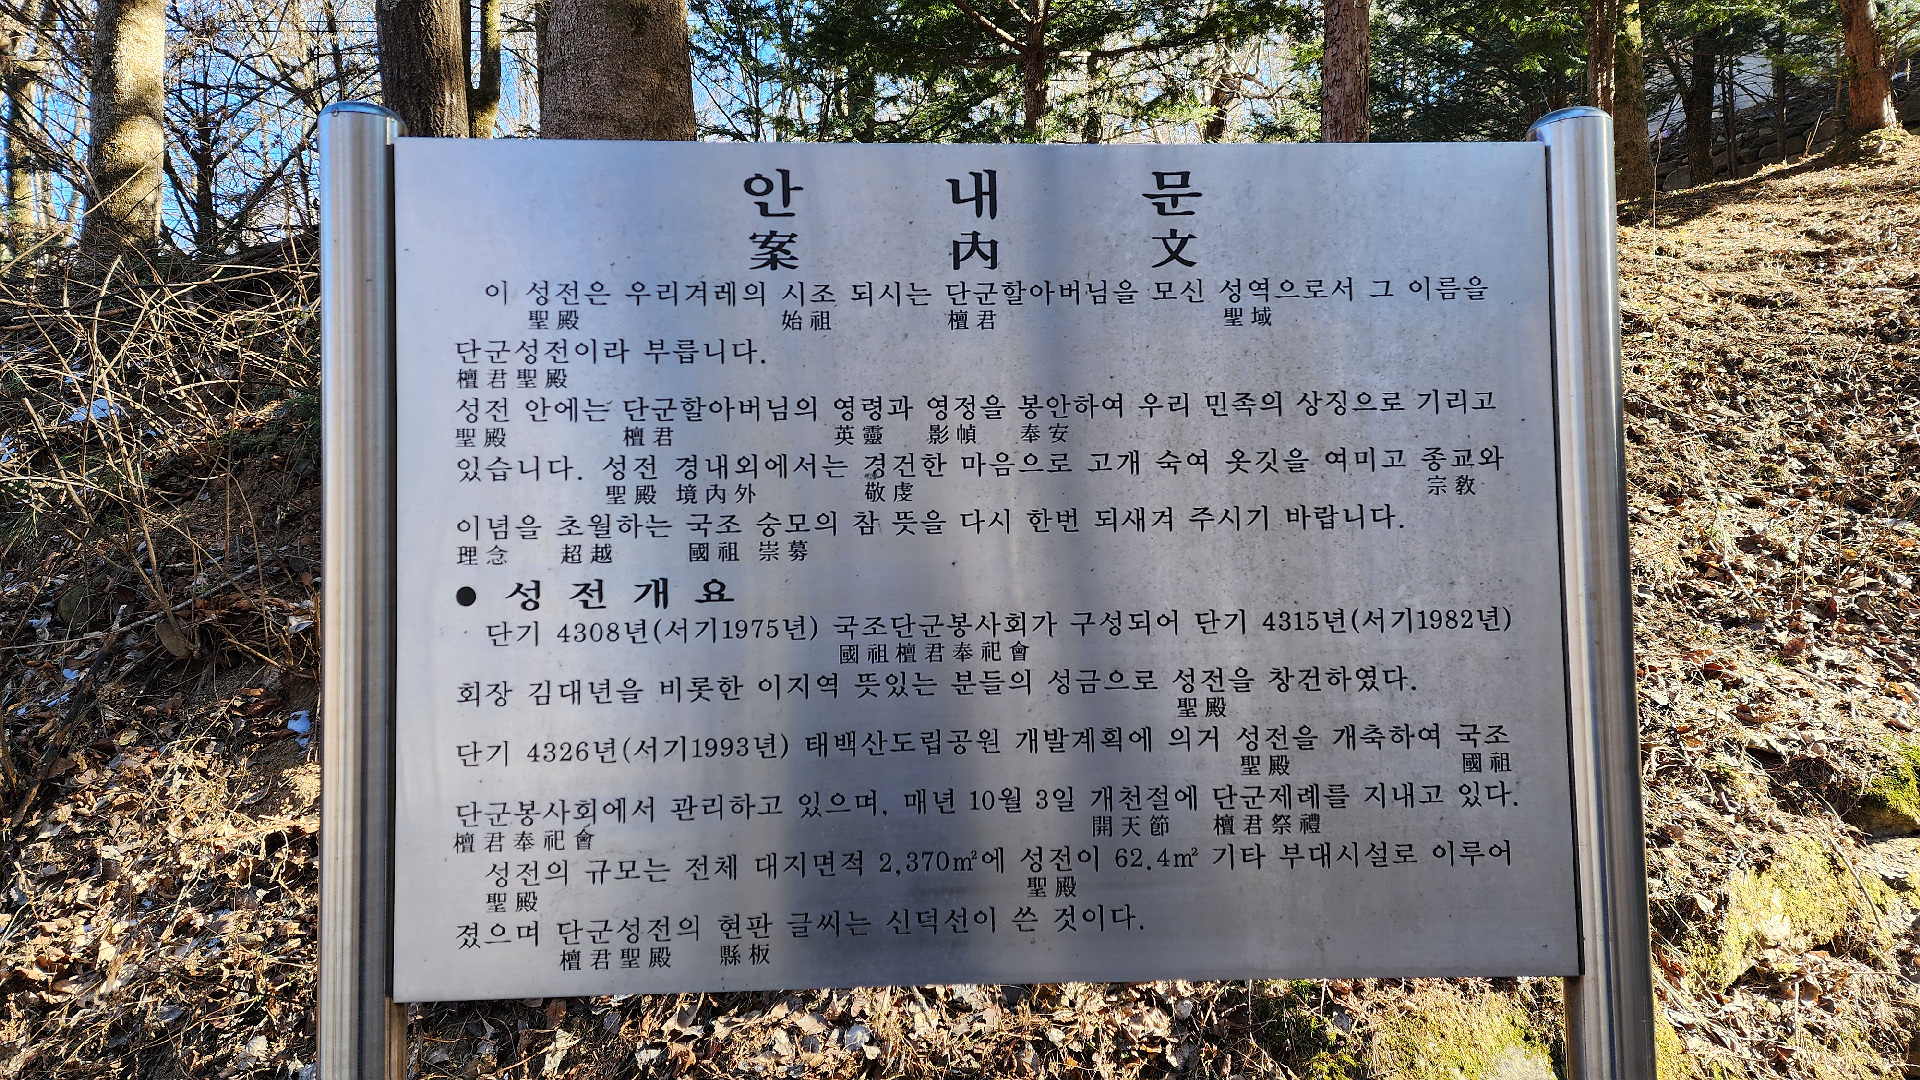 안 내 문
案 內 文
이 성전은 우리겨레의 시조 되시는 단군할아버님을 모신 성역으로서 그 이름을
聖殿 始祖 檀君 聖域
단군성전이라 부릅니다.
檀君聖殿
성전 안에는 단군할아버님의 영령과 영정을 봉안하여 우리 민족의 상징으로 기리고
聖殿 檀君 英靈 影幀 奉安
있습니다. 성전 경내외에서는 경건한 마음으로 고개 숙여 옷깃을 여미고 종교와
聖殿 境內外 敬虔 宗敎
이념을 초월하는 국조 숭모의 참 뜻을 다시 한번 되새겨 주시기 바랍니다.
理念 超越 國祖 崇募
● 성전개요
단기 4308년(서기1975년) 국조단군봉사회가 구성되어 단기 4315년(서기1982년)
國祖檀君奉祀會
회장 김대년을 비롯한 이지역 뜻있는 분들의 성금으로 성전을 창건하였다.
聖殿
단기 4326년(서기1993년) 태백산도립공원 개발계획에 의거 성전을 개축하여 국조
聖殿 國祖
단군봉사회에서 관리하고 있으며, 매년 10월 3일 개천절에 단군제례를 지내고 있다.
檀君奉祀會 開天節 檀君祭禮
성전의 규모는 전체 대지면적 2,370㎡에 성전이 62.4㎡ 기타 부대시설로 이루어
聖殿 聖殿
졌으며 단군성전의 현판 글씨는 신덕선이 쓴 것이다.
檀君聖殿 縣板